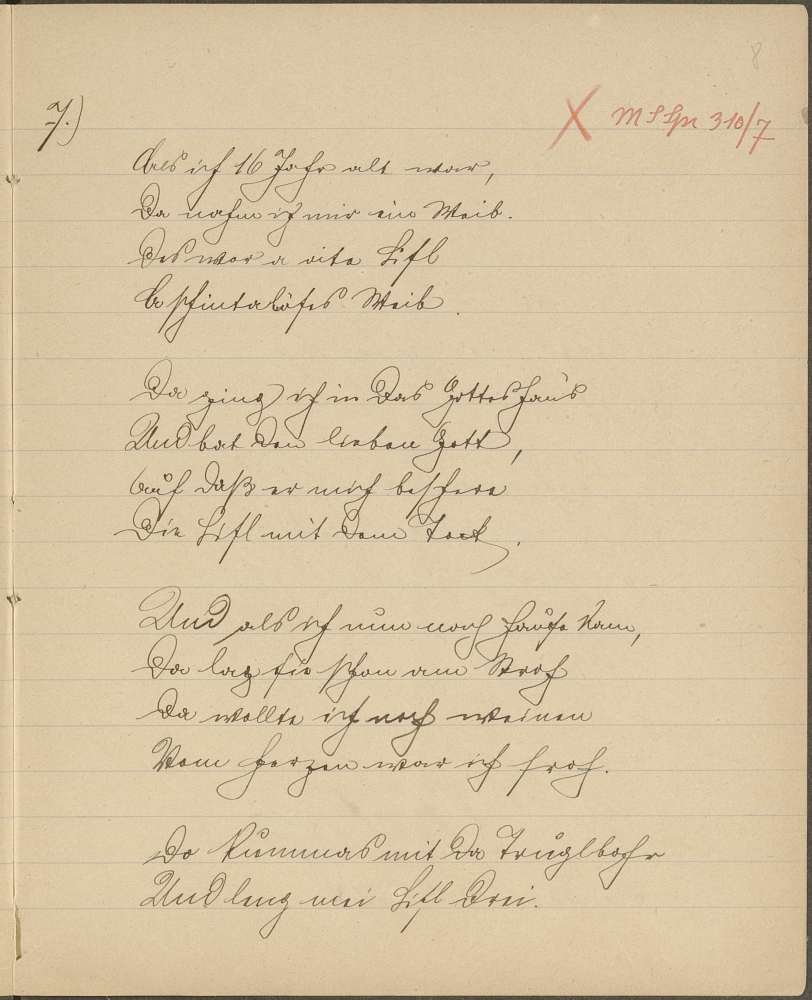 8
7.)
X M S Spr 310/7
Als ich 16 Jahr alt war,
Da nahm ich mir ein Weib.
Des war a olta Lisl
A schintaböses Weib.
Da ging ich in das Gotteshaus
Und bat den lieben Gott,
Auf daß er mich beschere
Die Lisl mit dem Tod.
Und als ich nun nach Hause kam,
Da lag sie schon am Stroh
Da wollte ich noch weinen
Vom Herzen war ich froh.
Do kummas mit da
Und leng mei Lisl drei.